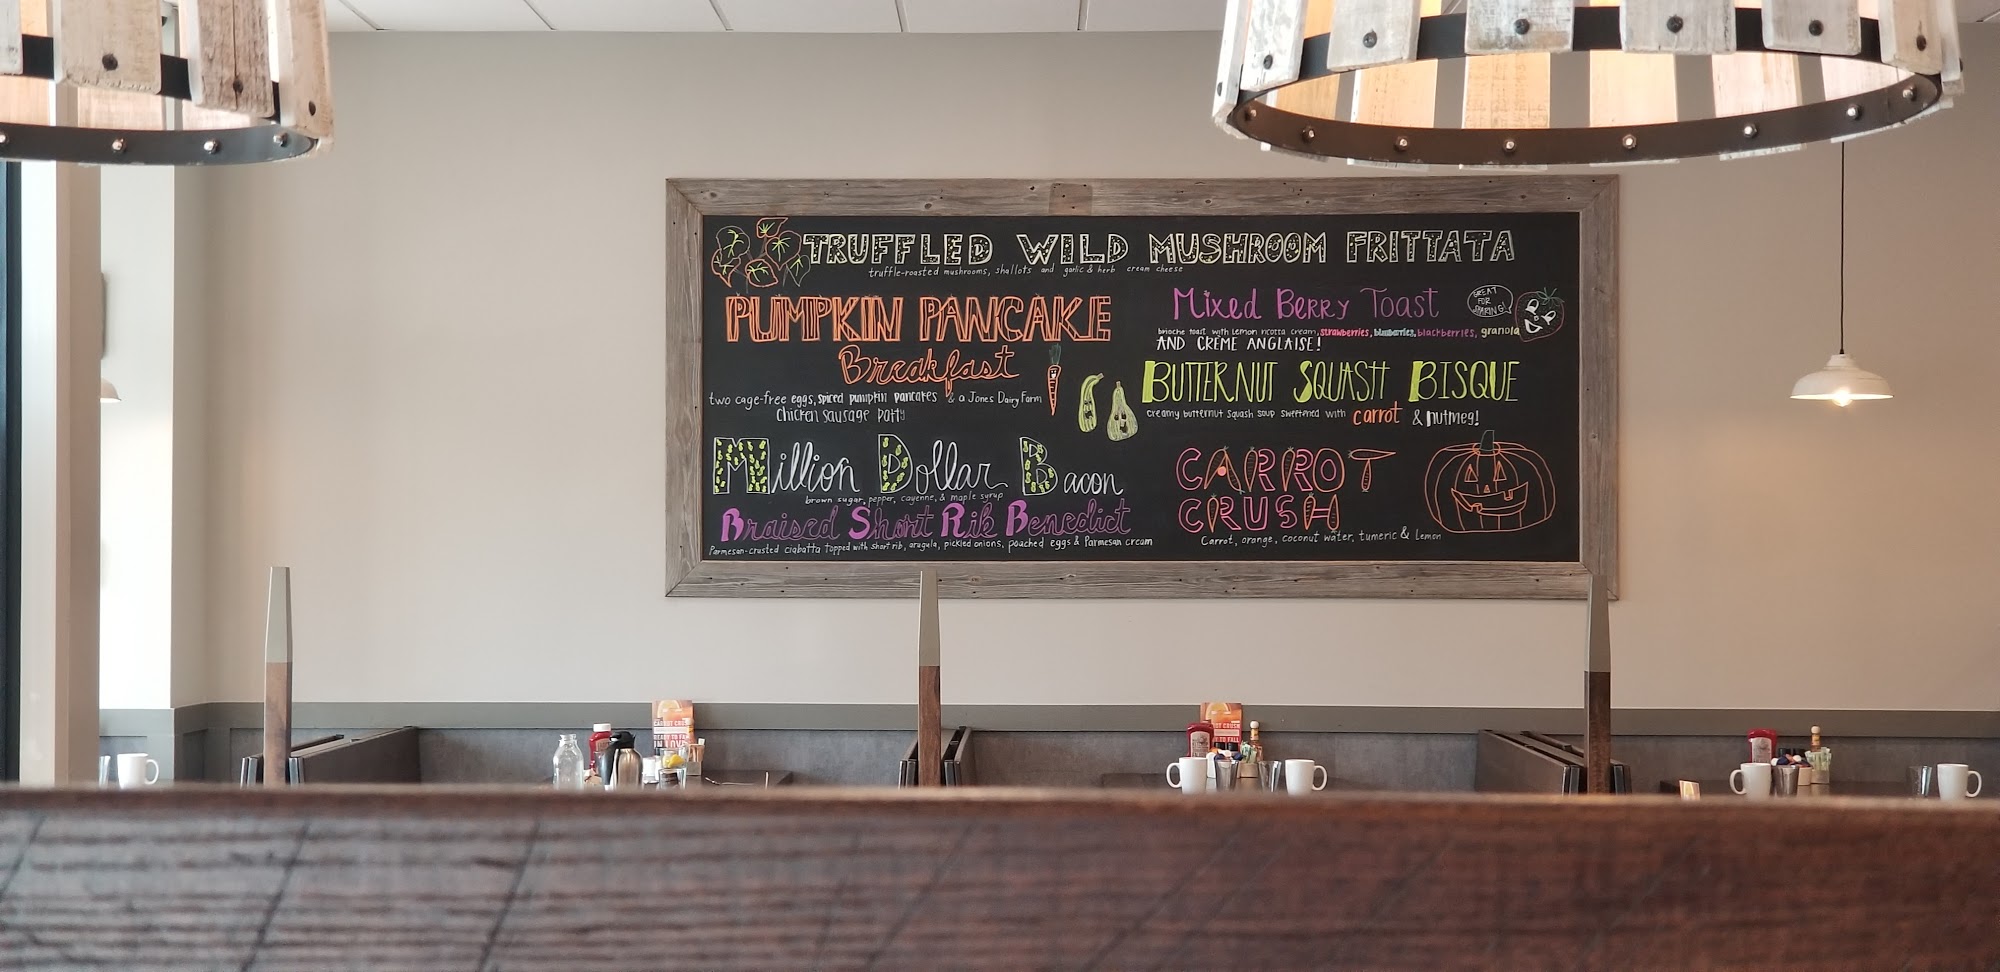 TRUFFLED WILD MUSHROOM FRITTATA
truffle-roasted mushrooms, shallots and garlic & herb cream cheese
PUMPKIN PANCAKE
Breakfast
two cage-free eggs, spiced pumpkin pancakes & a Jones Dairy Farm
chicken sausage patty
Million Dollar Bacon
brown sugar, pepper, cayenne, & maple syrup
Braised Short Rib Benedict
Parmesan-crusted ciabatta topped with short rib, arugula, pickled onions, poached eggs & Parmesan cream
Mixed Berry Toast
GREAT
FOR
SHARING!
brioche toast with lemon ricotta cream, strawberries, blueberries, blackberries, granola
AND CRÈME ANGLAISE!
BUTTERNUT SQUASH BISQUE
creamy butternut squash soup sweetened with carrot & nutmeg!
CARROT
CRUSH
Carrot, orange, coconut water, tumeric & Lemon
CRUSH
READY TO FALL
IN LOVE
CRUSH
TO FALL